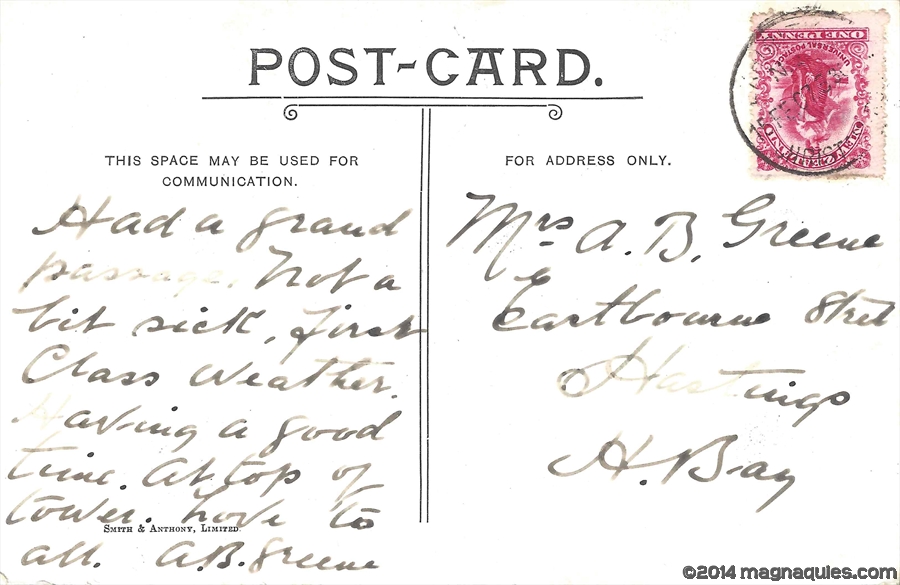 POST-CARD.
THIS SPACE MAY BE USED FOR
COMMUNICATION.
Had a grand
passage. Not a
bit sick, first
Class weather.
Having a good
time. At top of
tower. Love to
all. A.B. Greene
SMITH & ANTHONY, LIMITED.
FOR ADDRESS ONLY.
Mrs A. B. Greene
Eastbourne Street
Hastings
H. Bay
ONE PENNY
UNIVERSAL POSTAGE
NEW ZEALAND
©2014 magnaqules.com